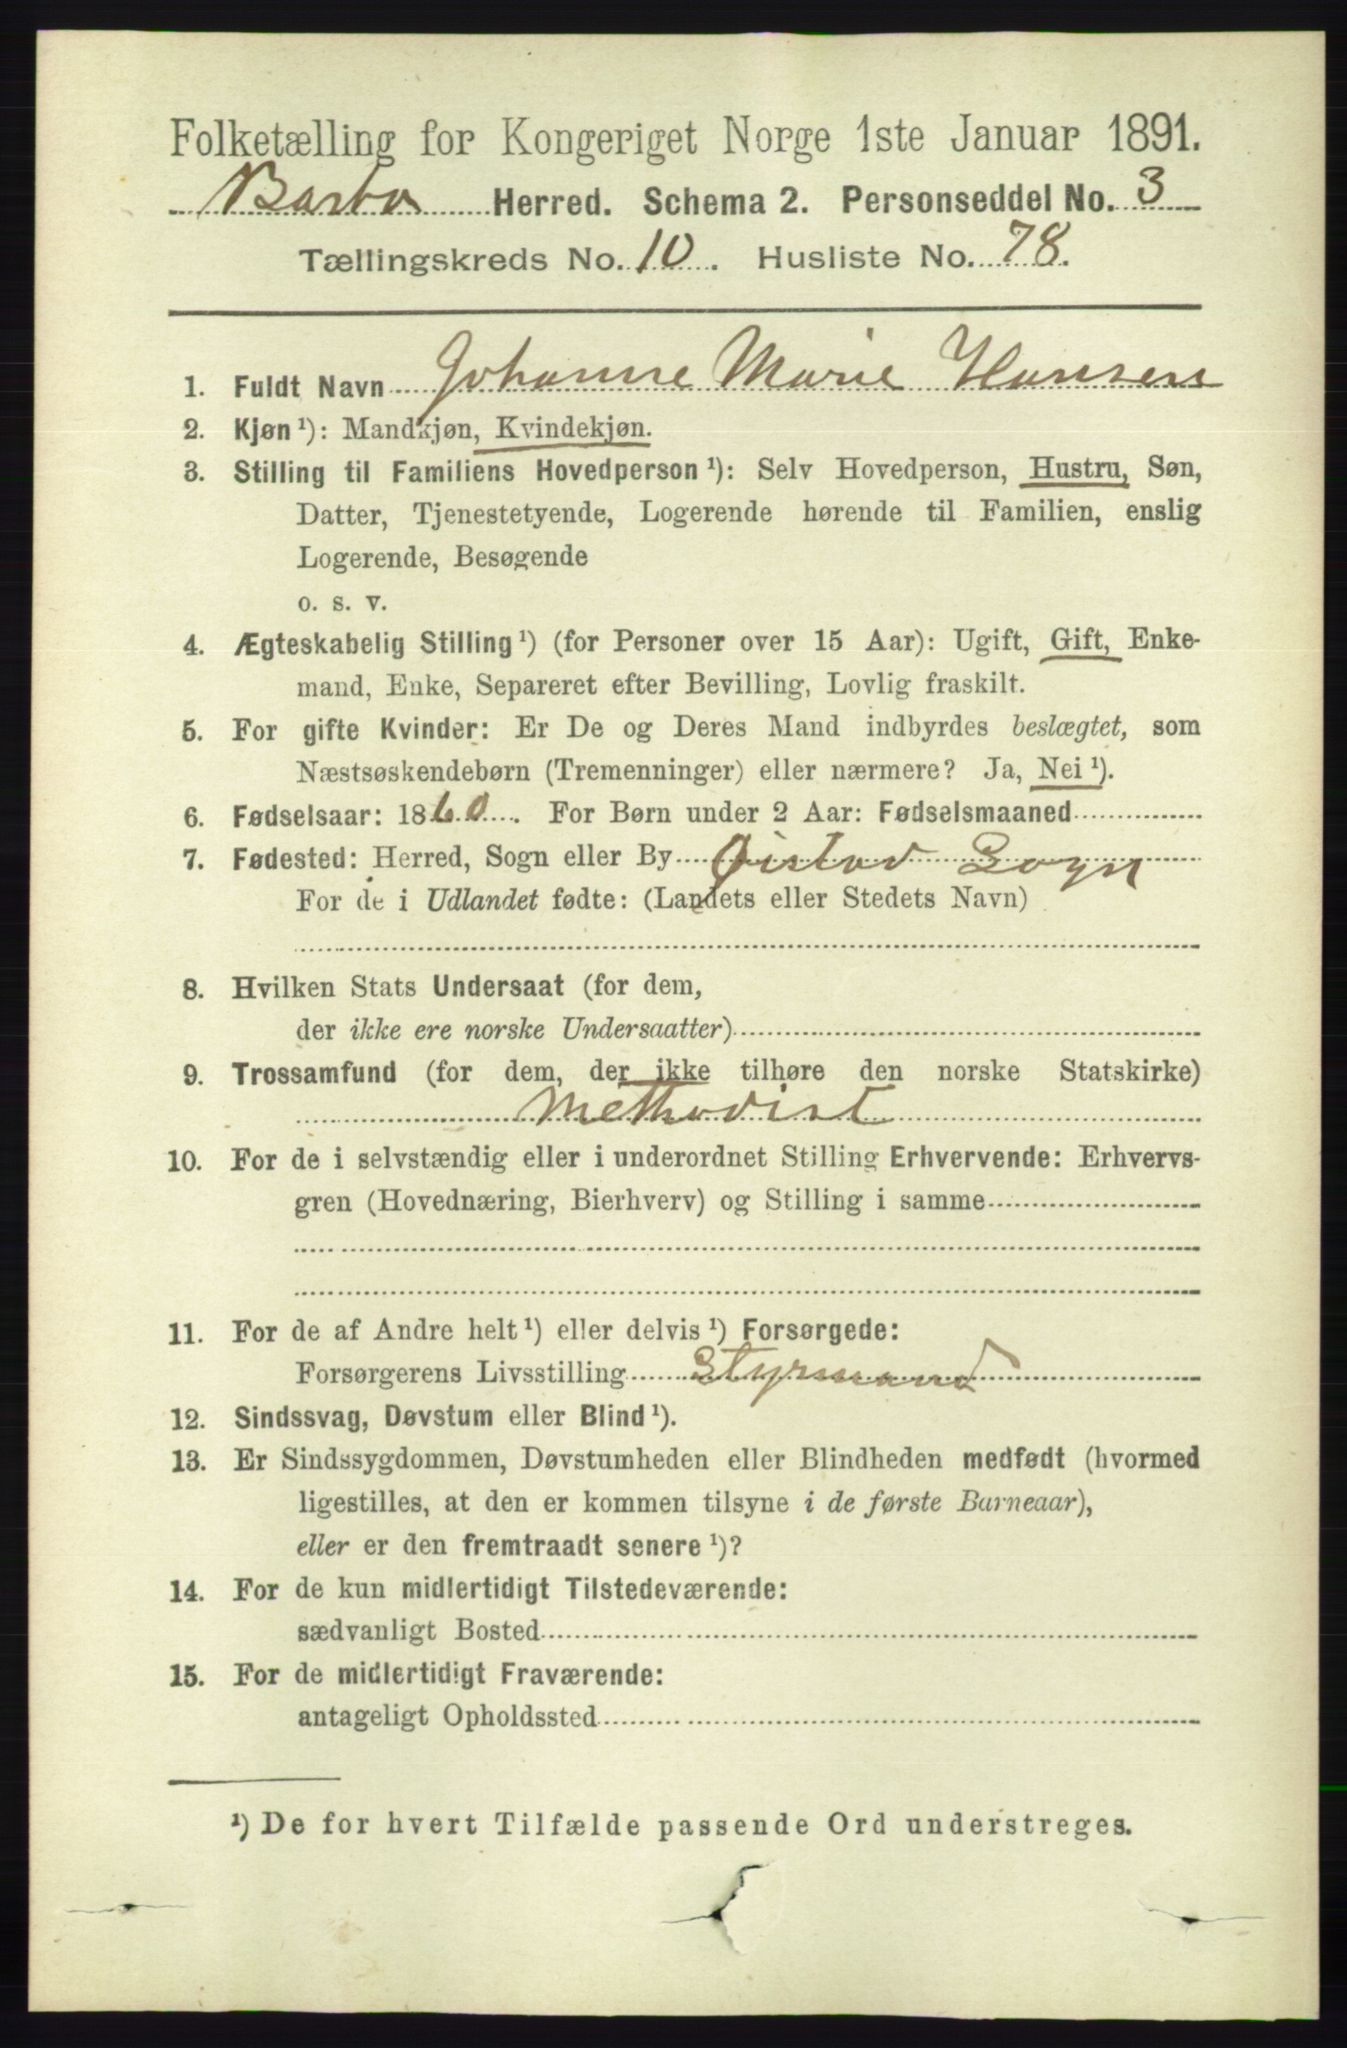 Folketælling for Kongeriget Norge 1ste Januar 1891.
Barbo Herred. Schema 2. Personseddel No. 3
Tællingskreds No. 10. Husliste No. 78.
1. Fuldt Navn Johanne Marie Hansen
2. Kjøn ¹): Mandkjøn, Kvindekjøn.
3. Stilling til Familiens Hovedperson ¹): Selv Hovedperson, Hustru, Søn,
Datter, Tjenestetyende, Logerende hørende til Familien, enslig
Logerende, Besøgende
o. s. v.
4. Ægteskabelig Stilling ¹) (for Personer over 15 Aar): Ugift, Gift, Enke-
mand, Enke, Separeret efter Bevilling, Lovlig fraskilt.
5. For gifte Kvinder: Er De og Deres Mand indbyrdes beslægtet, som
Næstsøskendebørn (Tremenninger) eller nærmere? Ja, Nei ¹).
6. Fødselsaar: 1860. For Børn under 2 Aar: Fødselsmaaned
7. Fødested: Herred, Sogn eller By Øistad Sogn
For de i Udlandet fødte: (Landets eller Stedets Navn)
8. Hvilken Stats Undersaat (for dem,
der ikke ere norske Undersaatter)
9. Trossamfund (for dem, der ikke tilhøre den norske Statskirke)
Methodist
10. For de i selvstændig eller i underordnet Stilling Erhvervende: Erhvervs-
gren (Hovednæring, Bierhverv) og Stilling i samme
11. For de af Andre helt ¹) eller delvis ¹) Forsørgede:
Forsørgerens Livsstilling Styrmand
12. Sindssvag, Døvstum eller Blind ¹).
13. Er Sindssygdommen, Døvstumheden eller Blindheden medfødt (hvormed
ligestilles, at den er kommen tilsyne i de første Barneaar),
eller er den fremtraadt senere ¹)?
14. For de kun midlertidigt Tilstedeværende:
sædvanligt Bosted
15. For de midlertidigt Fraværende:
antageligt Opholdssted
¹) De for hvert Tilfælde passende Ord understreges.